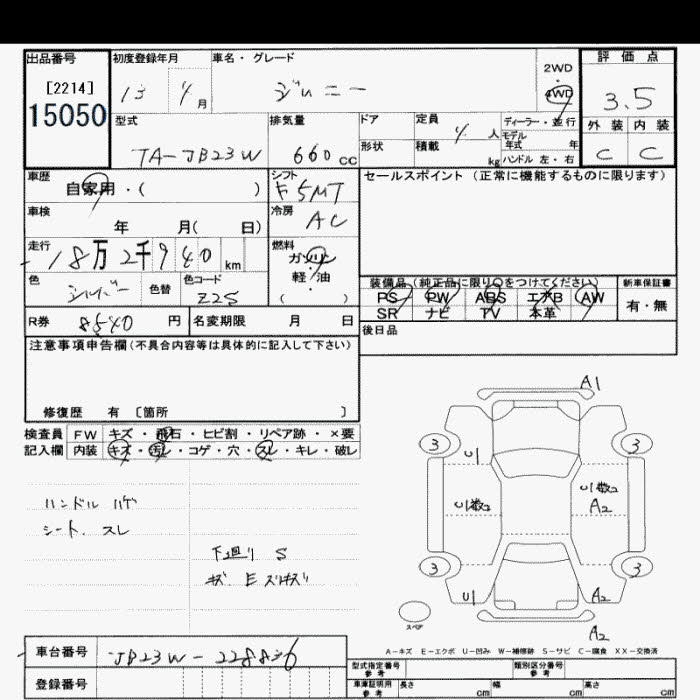 出品番号 初度登録年月 車名・グレード 2WD・4WD 評価点
[2214]
15050
13 4月 ジムニー 3.5
型式 排気量 ドア 定員 4人 ディーラー・並行 外装 内装
TA-JB23W 660cc 形状 積載 kg モデル年式 年 C C
ハンドル 左・右
車歴 シフト セールスポイント(正常に機能するものに限ります)
自家用・( ) F5MT
車検 年 月( 日) 冷房 AC
走行 燃料
18万2千940km ガソリン・軽油
色 シルバー 色替 色コード Z2S ( )
装備品(純正品に限り○をつけてください) 新車保証書
PS PW ABS エアB AW 有・無
SR ナビ TV 本革
R券 8540円 名変期限 月 日
後日品
注意事項申告欄(不具合内容等は具体的に記入して下さい)
修復歴 有 〔箇所 〕
検査員 FW キズ・飛石・ヒビ割・リペア跡・×要
記入欄 内装 キズ・汚レ・コゲ・穴・スレ・キレ・破レ
ハンドル ハゲ
シート、スレ
下廻り S
キズ E スリキズ
A1
3 3
U1
U1数2 U1数2
A2
3 3
U1 A2
スペア
A2
A-キズ E-エクボ U-凹み W-補修跡 S-サビ C-腐食 XX-交換済
車台番号 JB23W-228836
登録番号
型式指定番号 参考 類別区分番号 参考
車庫証明用 参考 長さ cm 幅 cm 高さ cm